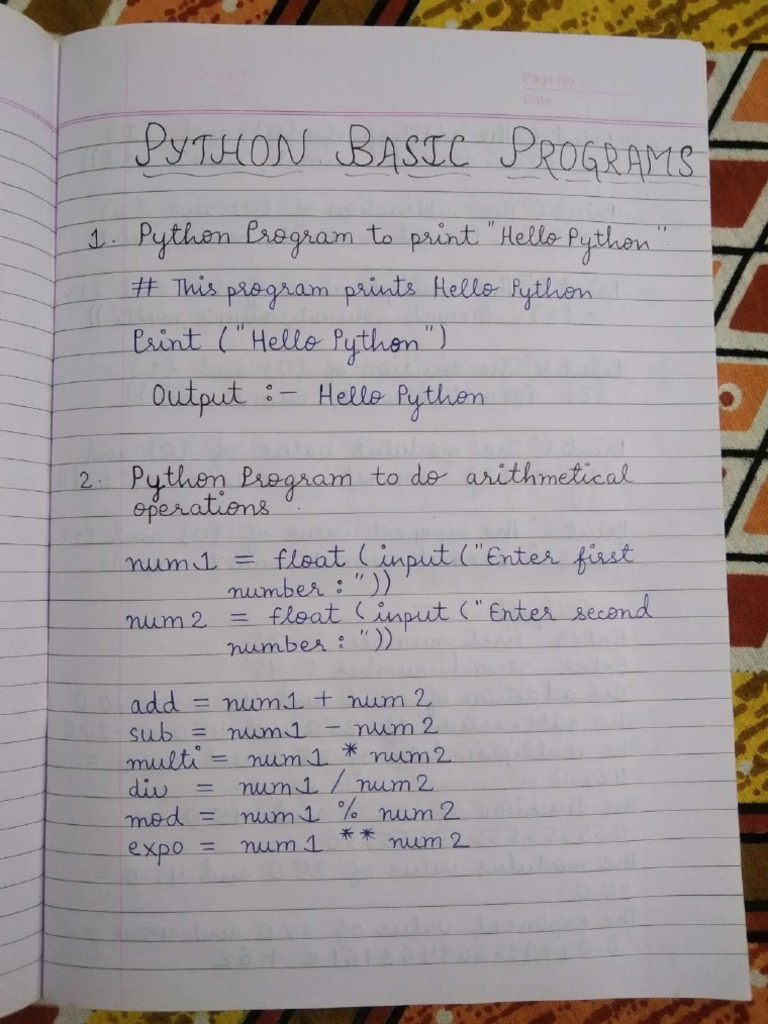 Page No.
Date
PYTHON BASIC PROGRAMS
1. Python Program to print "Hello Python"
# This program prints Hello Python
Print ("Hello Python")
Output :- Hello Python
2. Python Program to do arithmetical
operations
num1 = float (input ("Enter first
number : "))
num2 = float (input ("Enter second
number : "))
add = num1 + num2
sub = num1 - num2
multi = num1 * num2
div = num1 / num2
mod = num1 % num2
expo = num1 ** num2